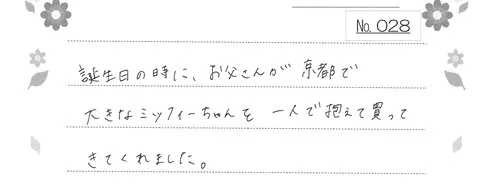 No. 028
誕生日の時に、お父さんが京都で
大きなミッフィーちゃんを一人で抱えて買って
きてくれました。